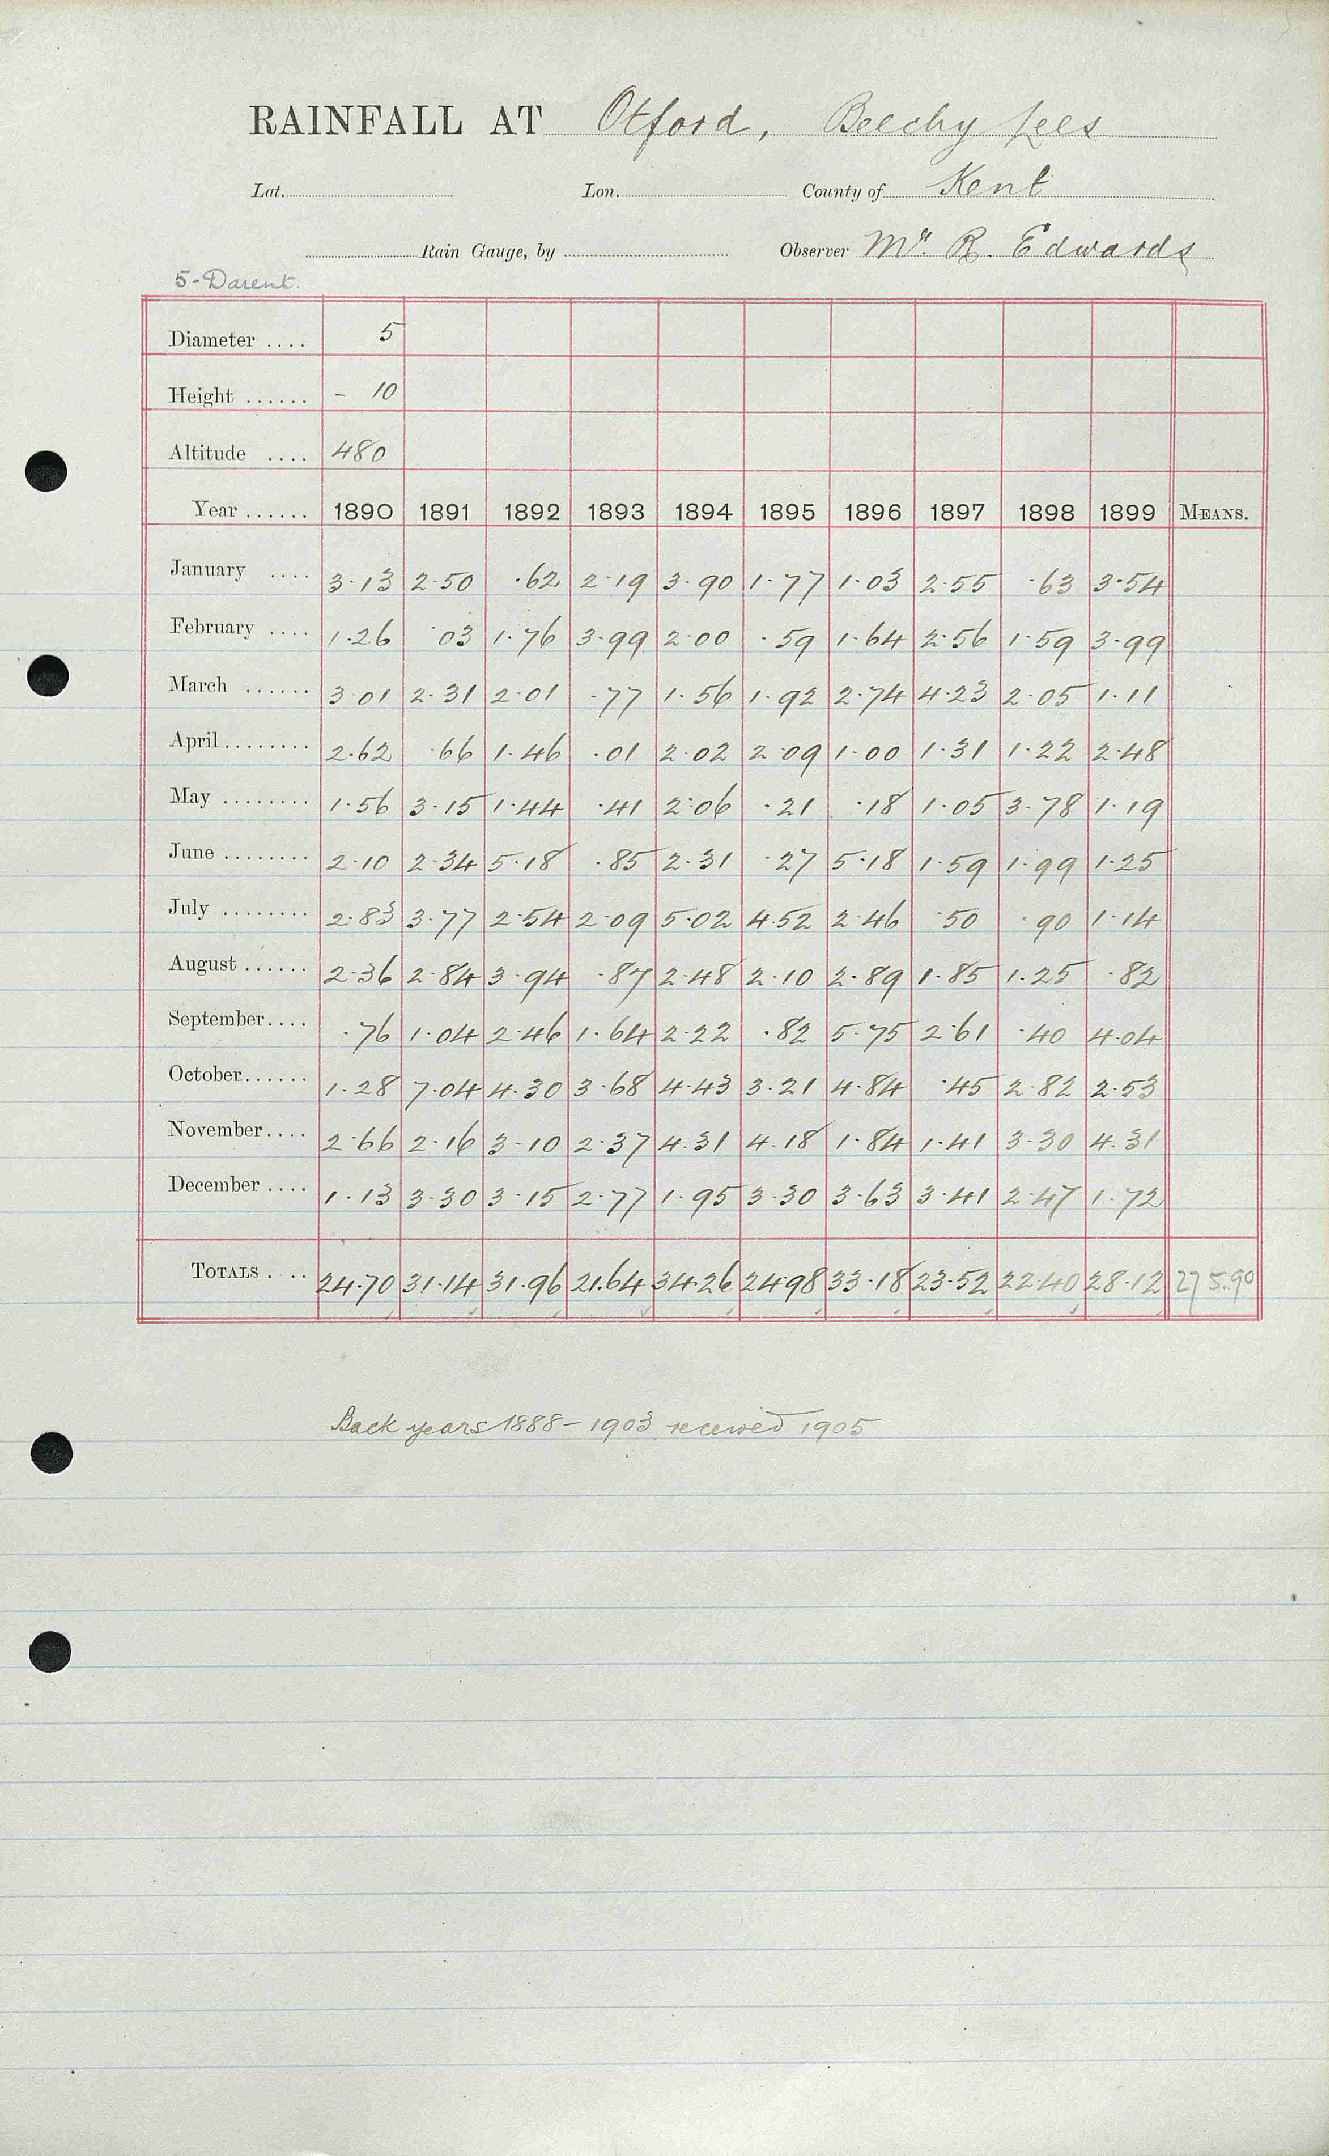 RAINFALL AT Otford, Beechy Lees
Lat. Lon. County of Kent
Rain Gauge, by Observer Mr R. Edwards
5-Darent.
Diameter .... 5
Height ...... - 10
Altitude .... 480
Year ...... 1890 1891 1892 1893 1894 1895 1896 1897 1898 1899 MEANS.
January .... 3.13 2.50 .62 2.19 3.90 1.77 1.03 2.55 .63 3.54
February .... 1.26 .03 1.76 3.99 2.00 .59 1.64 2.56 1.59 3.99
March ...... 3.01 2.31 2.01 .77 1.56 1.92 2.74 4.23 2.05 1.11
April ........ 2.62 .66 1.46 .01 2.02 2.09 1.00 1.31 1.22 2.48
May ........ 1.56 3.15 1.44 .41 2.06 .21 .18 1.05 3.78 1.19
June ........ 2.10 2.34 5.18 .85 2.31 .27 5.18 1.59 1.99 1.25
July ........ 2.83 3.77 2.54 2.09 5.02 4.52 2.46 .50 .90 1.14
August ...... 2.36 2.84 3.94 .87 2.48 2.10 2.89 1.85 1.25 .82
September.... .76 1.04 2.46 1.64 2.22 .82 5.75 2.61 .40 4.04
October...... 1.28 7.04 4.30 3.68 4.43 3.21 4.84 .45 2.82 2.53
November.... 2.66 2.16 3.10 2.37 4.31 4.18 1.84 1.41 3.30 4.31
December .... 1.13 3.30 3.15 2.77 1.95 3.30 3.63 3.41 2.47 1.72
TOTALS .... 24.70 31.14 31.96 21.64 34.26 24.98 33.18 23.52 22.40 28.12 275.90
Back years 1888-1903 received 1905